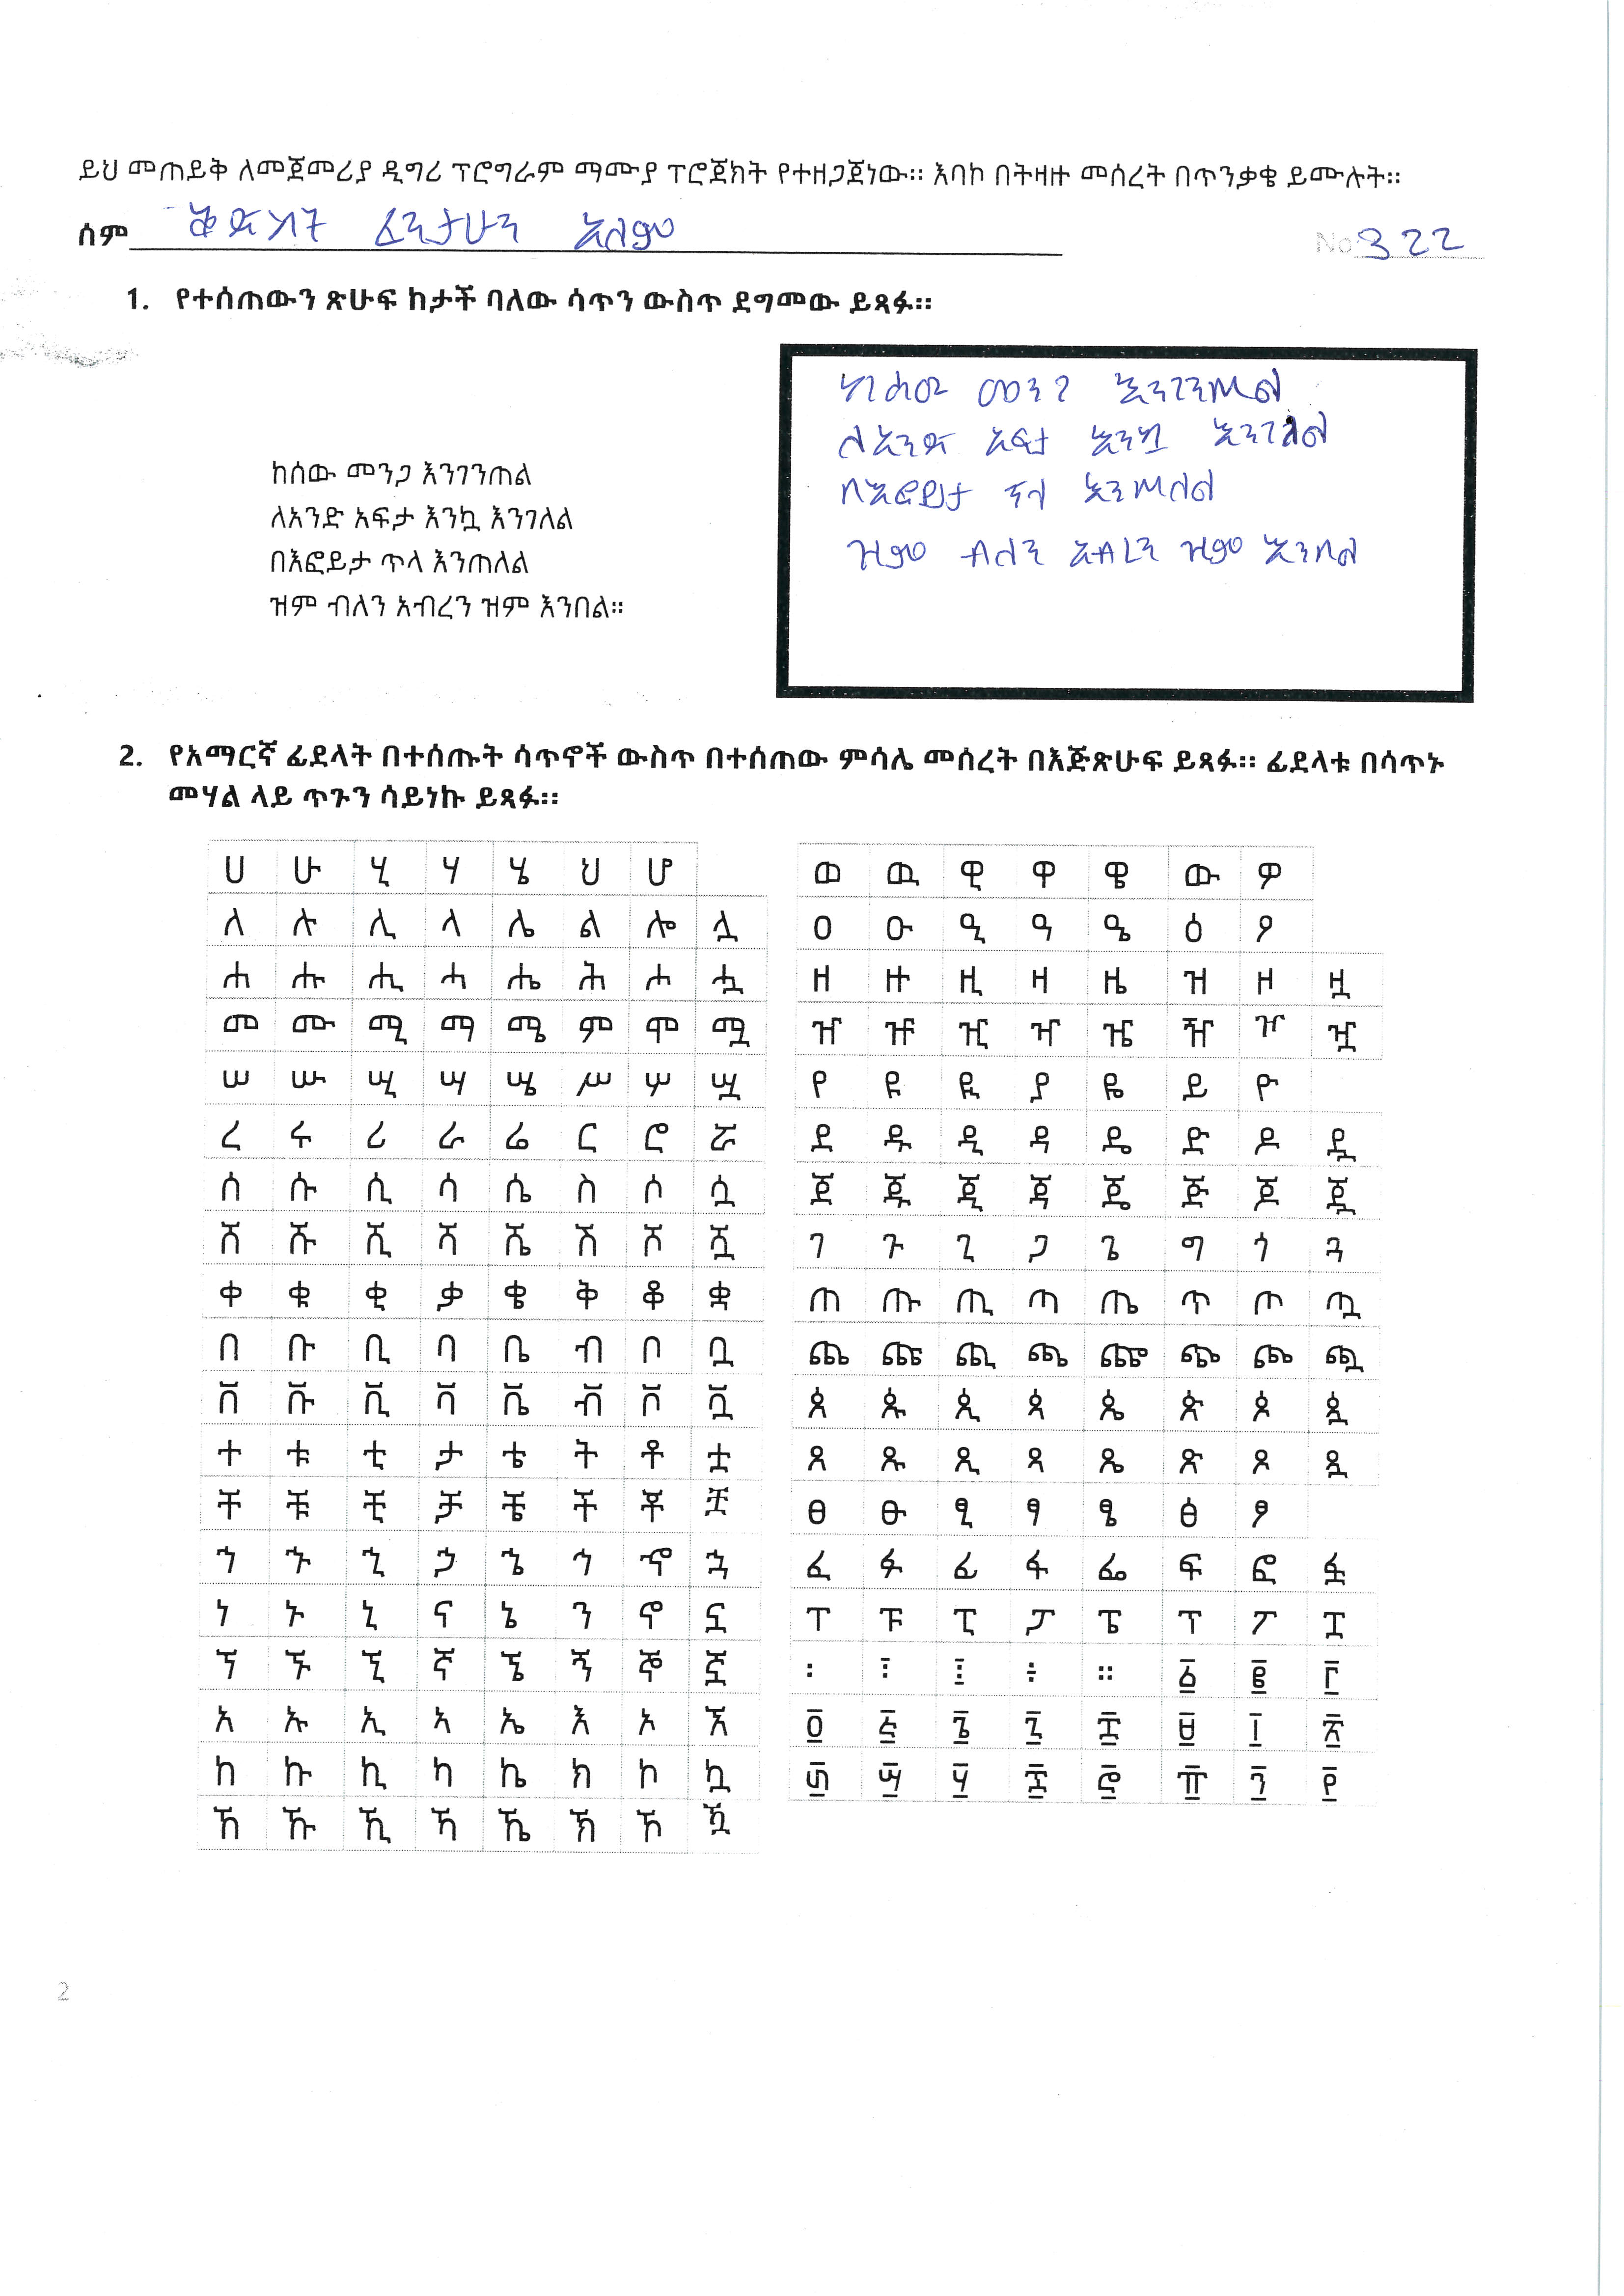 ይህ መጠይቅ ለመጀመሪያ ዲግሪ ፕሮግራም ማሙያ ፕሮጀክት የተዘጋጀነው። እባኮ በትዛዙ መሰረት በጥንቃቄ ይሙሉት።
ስም ቅድስት ፈንታሁን አለም No 322
1. የተሰጠውን ጽሁፍ ከታች ባለው ሳጥን ውስጥ ደግመው ይጻፉ።
ከሰው መንጋ እንገንጠል
ለአንድ አፍታ እንኳ እንገለል
በእፎይታ ጥላ እንጠለል
ዝም ብለን አብረን ዝም እንበል።
ከሰው መንጋ እንገንጠል
ለአንድ አፍታ እንኳ እንገለል
በእፎይታ ጥላ እንጠለል
ዝም ብለን አብረን ዝም እንበል
2. የአማርኛ ፊደላት በተሰጡት ሳጥኖች ውስጥ በተሰጠው ምሳሌ መሰረት በእጅጽሁፍ ይጻፉ። ፊደላቱ በሳጥኑ
መሃል ላይ ጥጉን ሳይነኩ ይጻፉ።
ሀ ሁ ሂ ሃ ሄ ህ ሆ
ለ ሉ ሊ ላ ሌ ል ሎ ሏ
ሐ ሑ ሒ ሓ ሔ ሕ ሖ ሗ
መ ሙ ሚ ማ ሜ ም ሞ ሟ
ሠ ሡ ሢ ሣ ሤ ሥ ሦ ሧ
ረ ሩ ሪ ራ ሬ ር ሮ ሯ
ሰ ሱ ሲ ሳ ሴ ስ ሶ ሷ
ሸ ሹ ሺ ሻ ሼ ሽ ሾ ሿ
ቀ ቁ ቂ ቃ ቄ ቅ ቆ ቋ
በ ቡ ቢ ባ ቤ ብ ቦ ቧ
ቨ ቩ ቪ ቫ ቬ ቭ ቮ ቯ
ተ ቱ ቲ ታ ቴ ት ቶ ቷ
ቸ ቹ ቺ ቻ ቼ ች ቾ ቿ
ኀ ኁ ኂ ኃ ኄ ኅ ኆ ኋ
ነ ኑ ኒ ና ኔ ን ኖ ኗ
ኘ ኙ ኚ ኛ ኜ ኝ ኞ ኟ
አ ኡ ኢ ኣ ኤ እ ኦ ኧ
ከ ኩ ኪ ካ ኬ ክ ኮ ኳ
ኸ ኹ ኺ ኻ ኼ ኽ ኾ ዃ
ወ ዉ ዊ ዋ ዌ ው ዎ
ዐ ዑ ዒ ዓ ዔ ዕ ዖ
ዘ ዙ ዚ ዛ ዜ ዝ ዞ ዟ
ዠ ዡ ዢ ዣ ዤ ዥ ዦ ዧ
የ ዩ ዪ ያ ዬ ይ ዮ
ደ ዱ ዲ ዳ ዴ ድ ዶ ዷ
ጀ ጁ ጂ ጃ ጄ ጅ ጆ ጇ
ገ ጉ ጊ ጋ ጌ ግ ጎ ጓ
ጠ ጡ ጢ ጣ ጤ ጥ ጦ ጧ
ጨ ጩ ጪ ጫ ጬ ጭ ጮ ጯ
ጰ ጱ ጲ ጳ ጴ ጵ ጶ ጷ
ጸ ጹ ጺ ጻ ጼ ጽ ጾ ጿ
ፀ ፁ ፂ ፃ ፄ ፅ ፆ
ፈ ፉ ፊ ፋ ፌ ፍ ፎ ፏ
ፐ ፑ ፒ ፓ ፔ ፕ ፖ ፗ
፡ ፣ ፤ ፥ ። ፩ ፪ ፫
፬ ፭ ፮ ፯ ፰ ፱ ፲ ፳
፴ ፵ ፶ ፷ ፸ ፹ ፺ ፻
2